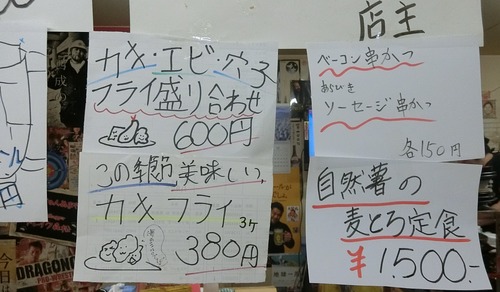 店主
カキ・エビ・穴子
フライ盛り合わせ
600円
この季節美味しい
カキフライ 3ケ
380円
ベーコン串かつ
あらびき
ソーセージ串かつ
各150円
自然薯の
麦とろ定食
¥1.500.-
DRAGON
今日